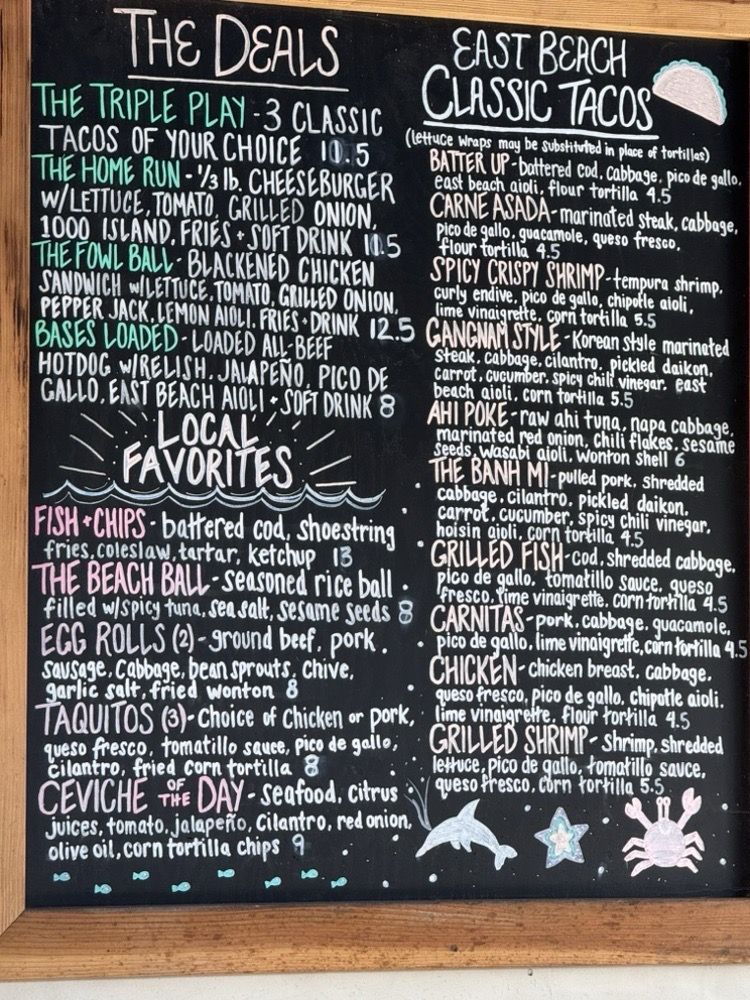 THE DEALS
THE TRIPLE PLAY - 3 CLASSIC
TACOS OF YOUR CHOICE 10.5
THE HOME RUN - 1/3 lb. CHEESEBURGER
W/LETTUCE, TOMATO, GRILLED ONION,
1000 ISLAND, FRIES + SOFT DRINK 11.5
THE FOWL BALL - BLACKENED CHICKEN
SANDWICH w/LETTUCE, TOMATO, GRILLED ONION,
PEPPER JACK, LEMON AIOLI, FRIES + DRINK 12.5
BASES LOADED - LOADED ALL-BEEF
HOTDOG W/RELISH, JALAPEÑO, PICO DE
GALLO, EAST BEACH AIOLI + SOFT DRINK 8
LOCAL
FAVORITES
FISH + CHIPS - battered cod, shoestring
fries, coleslaw, tartar, ketchup 13
THE BEACH BALL - seasoned rice ball
filled w/spicy tuna, sea salt, sesame seeds 8
EGG ROLLS (2) - ground beef, pork,
sausage, cabbage, bean sprouts, chive,
garlic salt, fried wonton 8
TAQUITOS (3) - Choice of chicken or pork,
queso fresco, tomatillo sauce, pico de gallo,
cilantro, fried corn tortilla 8
CEVICHE OF THE DAY - seafood, citrus
juices, tomato, jalapeño, cilantro, red onion,
olive oil, corn tortilla chips 9
EAST BEACH
CLASSIC TACOS
(lettuce wraps may be substituted in place of tortillas)
BATTER UP - battered cod, cabbage, pico de gallo,
east beach aioli, flour tortilla 4.5
CARNE ASADA - marinated steak, cabbage,
pico de gallo, guacamole, queso fresco,
flour tortilla 4.5
SPICY CRISPY SHRIMP - tempura shrimp,
curly endive, pico de gallo, chipotle aioli,
lime vinaigrette, corn tortilla 5.5
GANGNAM STYLE - Korean style marinated
steak, cabbage, cilantro, pickled daikon,
carrot, cucumber, spicy chili vinegar, east
beach aioli, corn tortilla 5.5
AHI POKE - raw ahi tuna, napa cabbage,
marinated red onion, chili flakes, sesame
seeds, wasabi aioli, wonton shell 6
THE BANH MI - pulled pork, shredded
cabbage, cilantro, pickled daikon,
carrot, cucumber, spicy chili vinegar,
hoisin aioli, corn tortilla 4.5
GRILLED FISH - cod, shredded cabbage,
pico de gallo, tomatillo sauce, queso
fresco, lime vinaigrette, corn tortilla 4.5
CARNITAS - pork, cabbage, guacamole,
pico de gallo, lime vinaigrette, corn tortilla 4.5
CHICKEN - chicken breast, cabbage,
queso fresco, pico de gallo, chipotle aioli,
lime vinaigrette, flour tortilla 4.5
GRILLED SHRIMP - Shrimp, shredded
lettuce, pico de gallo, tomatillo sauce,
queso fresco, corn tortilla 5.5